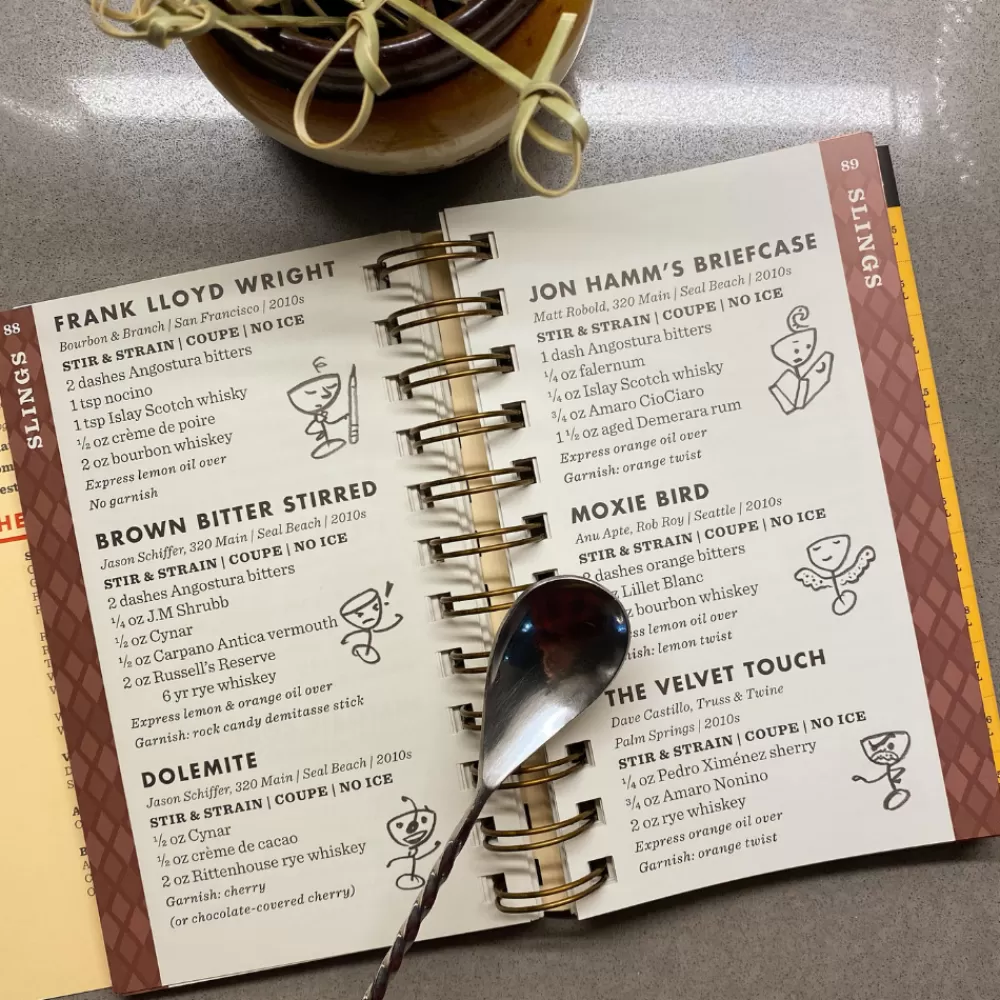 88
SLINGS
FRANK LLOYD WRIGHT
Bourbon & Branch | San Francisco | 2010s
STIR & STRAIN | COUPE | NO ICE
2 dashes Angostura bitters
1 tsp nocino
1 tsp Islay Scotch whisky
½ oz crème de poire
2 oz bourbon whiskey
Express lemon oil over
No garnish
BROWN BITTER STIRRED
Jason Schiffer, 320 Main | Seal Beach | 2010s
STIR & STRAIN | COUPE | NO ICE
2 dashes Angostura bitters
¼ oz J.M Shrubb
½ oz Cynar
½ oz Carpano Antica vermouth
2 oz Russell's Reserve
6 yr rye whiskey
Express lemon & orange oil over
Garnish: rock candy demitasse stick
DOLEMITE
Jason Schiffer, 320 Main | Seal Beach | 2010s
STIR & STRAIN | COUPE | NO ICE
½ oz Cynar
½ oz crème de cacao
2 oz Rittenhouse rye whiskey
Garnish: cherry
(or chocolate-covered cherry)
89
SLINGS
JON HAMM'S BRIEFCASE
Matt Robold, 320 Main | Seal Beach | 2010s
STIR & STRAIN | COUPE | NO ICE
1 dash Angostura bitters
¼ oz falernum
¼ oz Islay Scotch whisky
¾ oz Amaro CioCiaro
1 ½ oz aged Demerara rum
Express orange oil over
Garnish: orange twist
MOXIE BIRD
Anu Apte, Rob Roy | Seattle | 2010s
STIR & STRAIN | COUPE | NO ICE
dashes orange bitters
Lillet Blanc
bourbon whiskey
lemon oil over
lemon twist
THE VELVET TOUCH
Dave Castillo, Truss & Twine
Palm Springs | 2010s
STIR & STRAIN | COUPE | NO ICE
¼ oz Pedro Ximénez sherry
¾ oz Amaro Nonino
2 oz rye whiskey
Express orange oil over
Garnish: orange twist